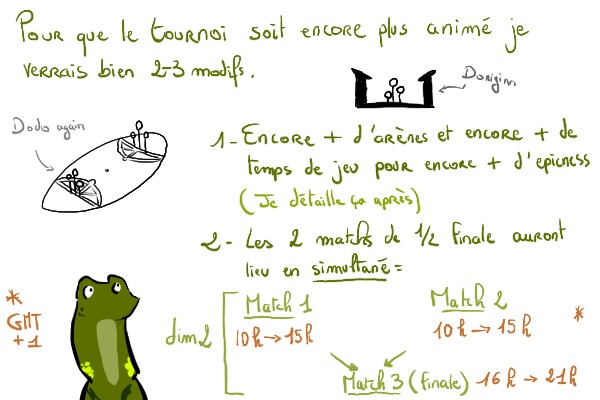 Pour que le tournoi soit encore plus animé je
verrais bien 2-3 modifs.
Doriginn
Dodo again
1- Encore + d'arènes et encore + de
temps de jeu pour encore + d'epicness
(Je détaille ça après)
2- Les 2 matchs de 1/2 finale auront
lieu en simultané =
* GMT +1
dim 2
Match 1
10h → 15h
Match 2
10h → 15h *
Match 3 (finale) 16h → 21h